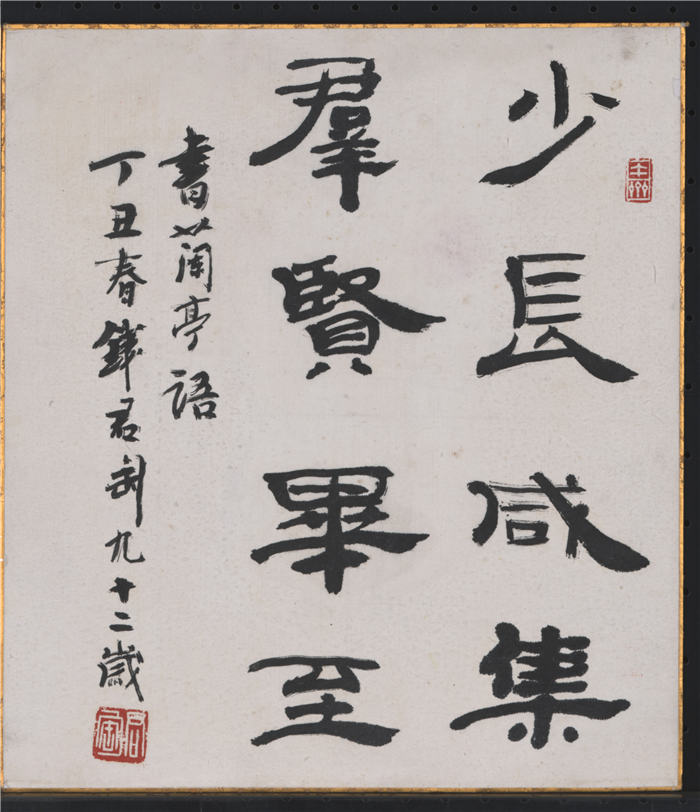 少長咸集
羣賢畢至
書蘭亭語
丁丑春錢君匋九十二歲